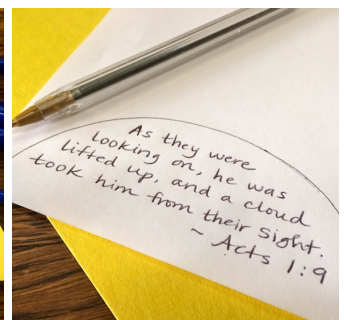 As they were
looking on, he was
lifted up, and a cloud
took him from their sight.
~ Acts 1:9